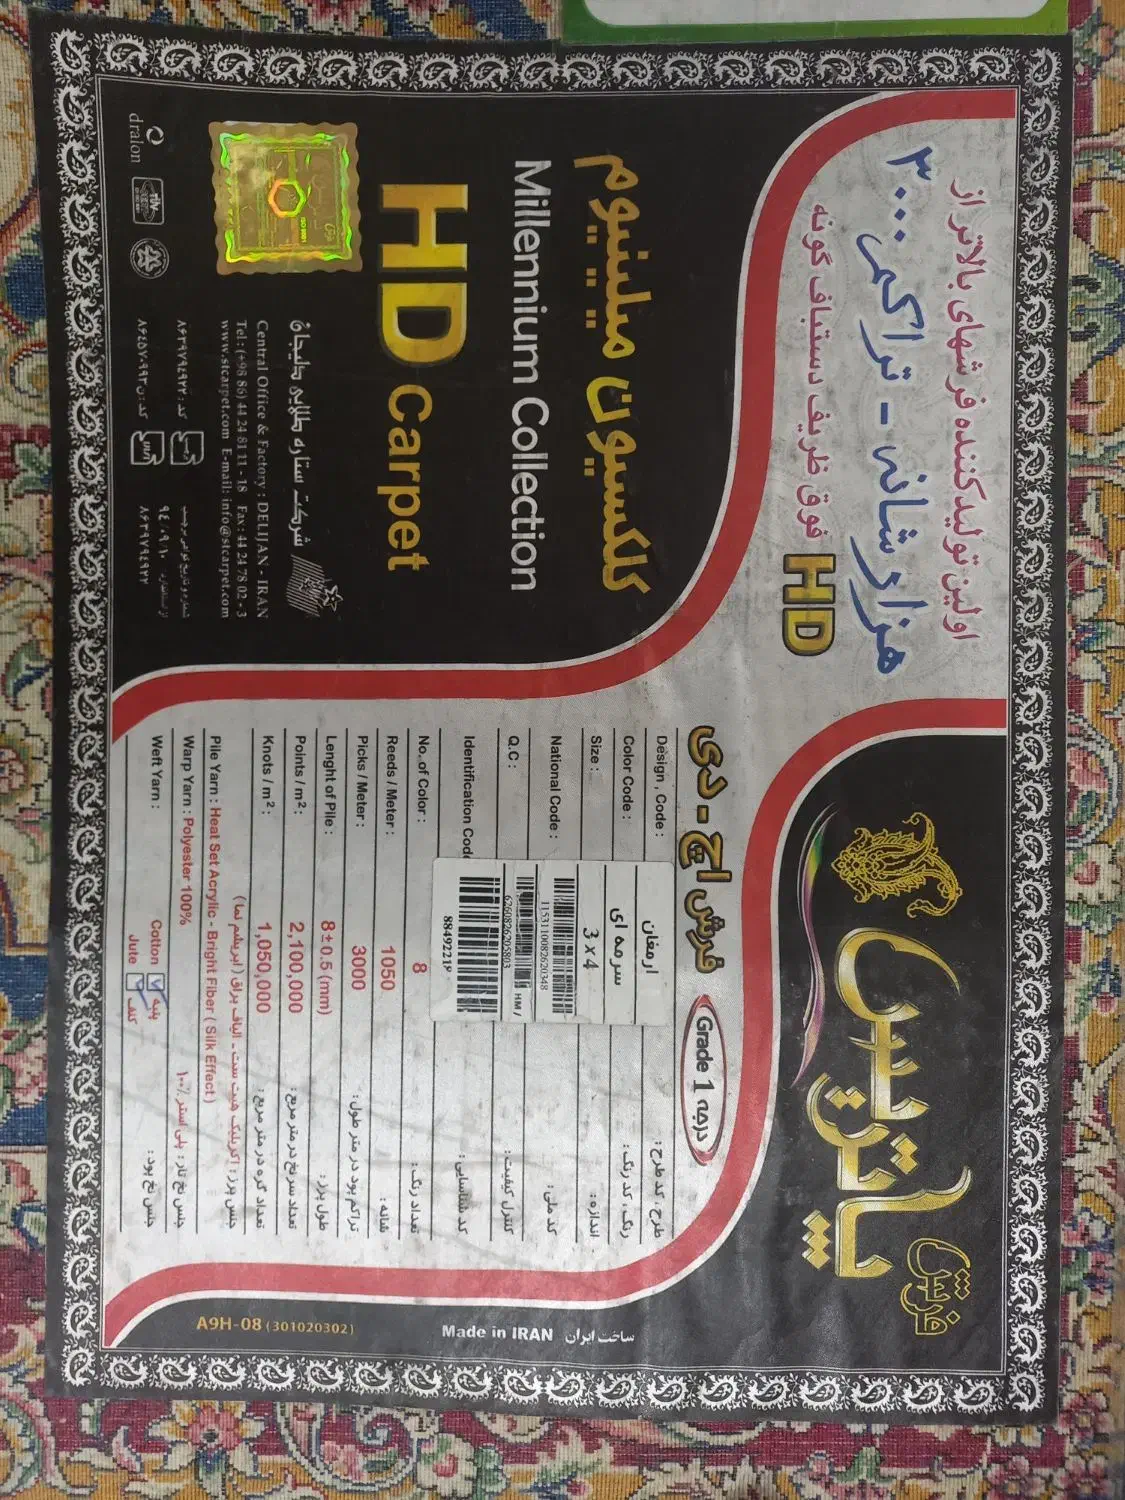 اولین تولیدکننده فرشهای بالاتر از
هزار شانه - تراکم ۳۰۰۰
HD فوق ظریف دستباف گونه
کلکسیون میلینیوم
Millennium Collection
HD Carpet
ISO 9001
شرکت ستاره طلایی دلیجان
Central Office & Factory : DELIJAN - IRAN
Tel : (+98 86) 44 24 81 11 - 18 Fax: 44 24 78 02 - 3
www.stcarpet.com E-mail: info@stcarpet.com
dralon
فرش
پاتریس
فرش اچ - دی
Grade 1 درجه
Design , Code : ارمغان طرح ، کد طرح :
Color Code : سرمه ای رنگ ، کد رنگ :
Size : 3 x 4 اندازه :
National Code : کد ملی :
1153110082620348
Q.C : کنترل کیفیت :
6260826205803
HM/
Identification Code کد شناسایی :
No. of Color : 8 تعداد رنگ :
Reeds / Meter : 1050 شانه :
Picks / Meter : 3000 تراکم پود در متر طول :
Lenght of Pile : 8±0.5 (mm) طول پرز :
Points / m² : 2,100,000 تعداد سرخ در متر مربع :
Knots / m² : 1,050,000 تعداد گره در متر مربع :
جنس پرز : اکریلیک هیت ست - الیاف براق ( ابریشم نما )
Pile Yarn : Heat Set Acrylic - Bright Fiber ( Silk Effect )
Warp Yarn : Polyester 100% جنس نخ تار : پلی استر ۱۰۰٪
Weft Yarn : Cotton پنبه جنس نخ پود :
Jute کنف
A9H-08 (301020302)
Made in IRAN ساخت ایران